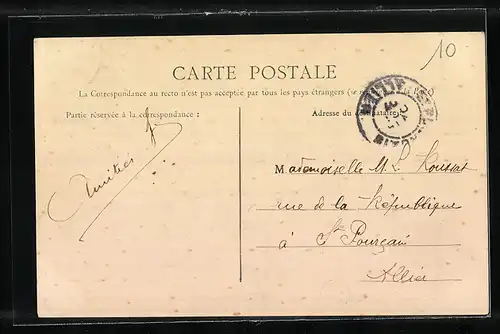 10
CARTE POSTALE
La Correspondance au recto n'est pas acceptée par tous les pays étrangers
Partie réservée à la correspondance :
Adresse du destinataire
Amitiés
Mademoiselle M. L. Roussat
rue de la République
à St Pourçain
Allier